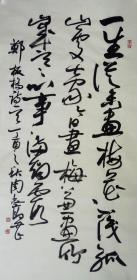 一生從未畫梅花不識孤
山處士家今日畫梅兼畫竹
歲寒心事滿煙霞
鄭板橋詩一首之秋周